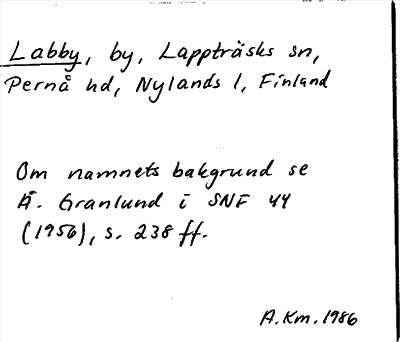 Labby, by, Lappträsks sn,
Pernå hd, Nylands l, Finland
Om namnets bakgrund se
Å. Granlund i SNF 44
(1956), s. 238 ff.
A.Km. 1986